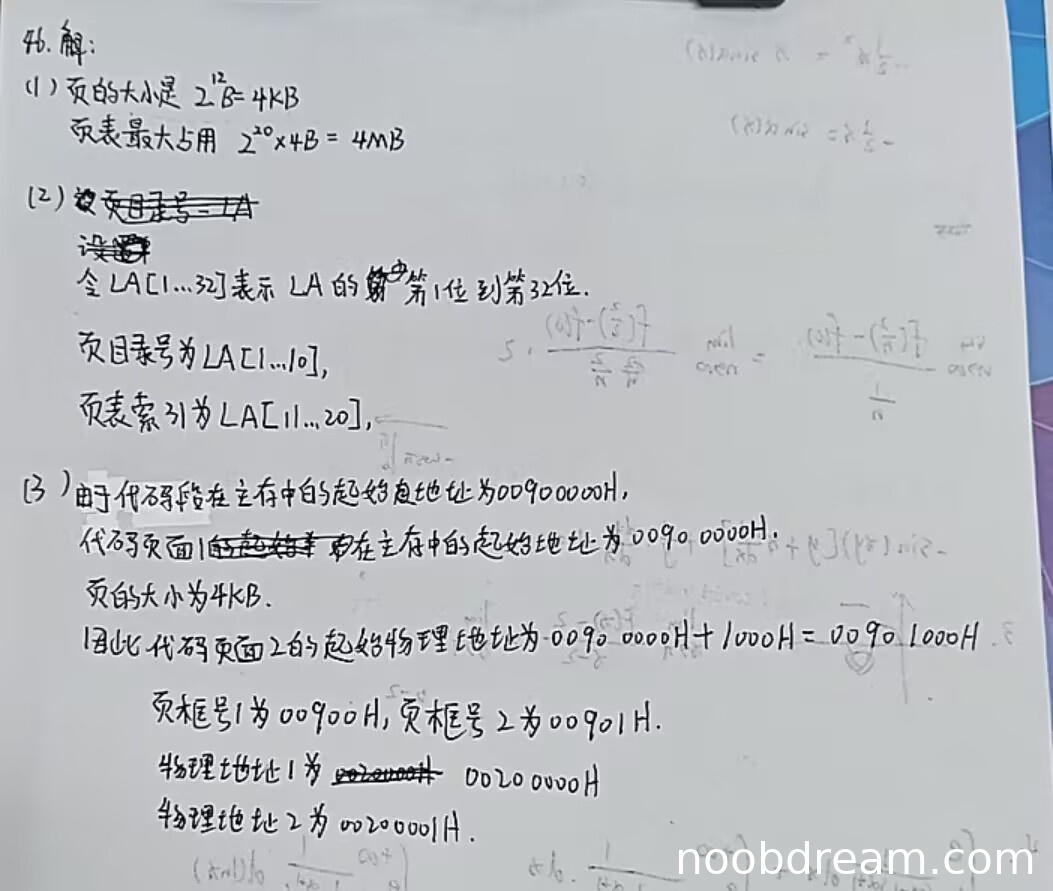 46. 解:
(1) 页的大小是 2¹²B=4KB
页表最大占用 2²⁰×4B = 4MB
(2) 页目录号=LA
设
令LA[1...32]表示 LA的 第1位到第32位.
页目录号为LA[1...10],
页表索引为LA[11...20],
(3) 由于代码段在主存中的起始地址为00900000H,
代码页面1 在主存中的起始地址为0090 0000H.
页的大小为4KB.
因此代码页面2的起始物理地址为0090 0000H+1000H=0090 1000H
页框号1为00900H, 页框号2为00901H.
物理地址1为 0020000H 00200000H
物理地址2为00200001H.
noobdream.com